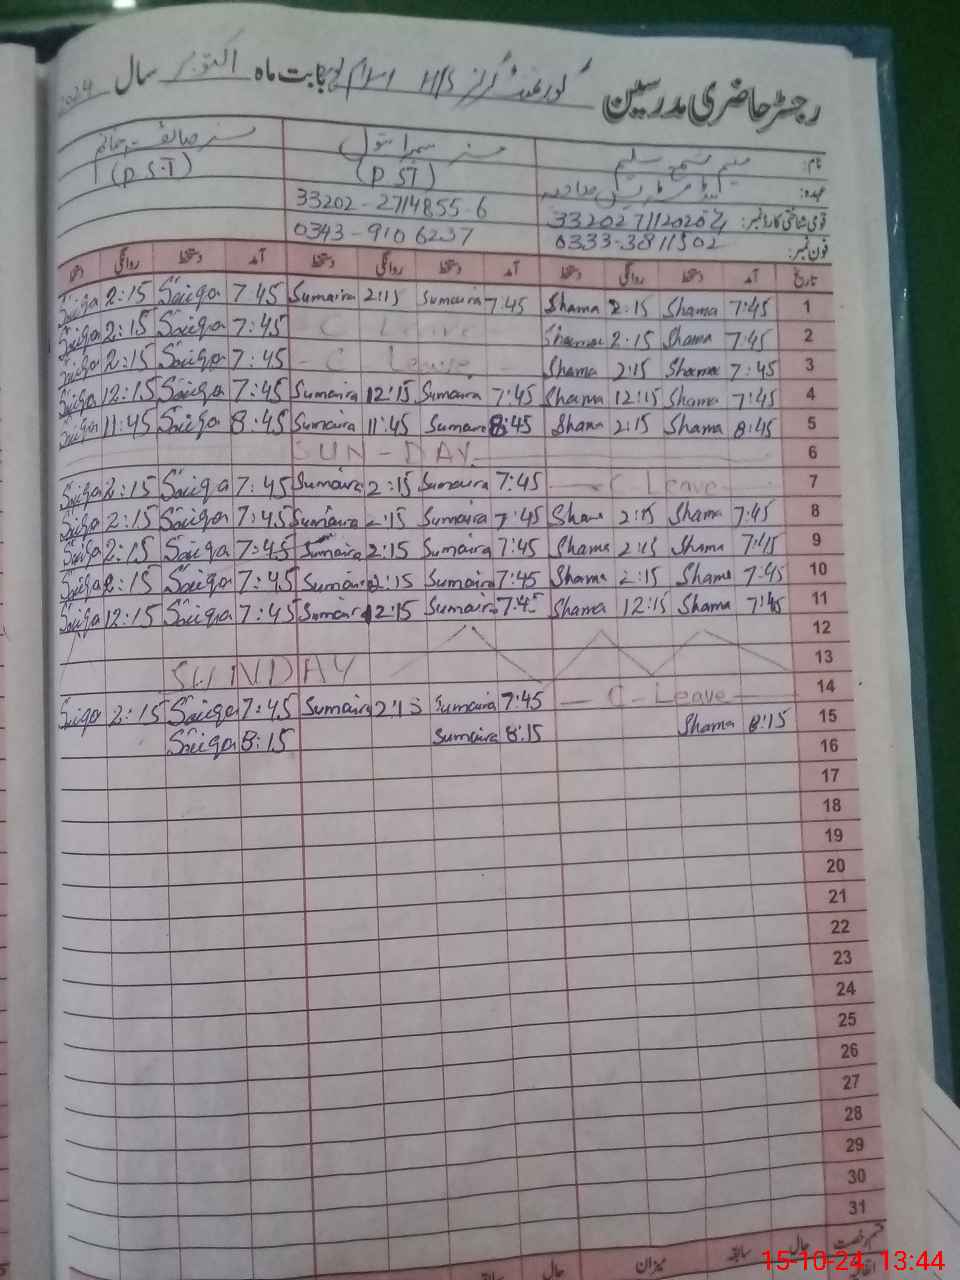 رجسٹر حاضری مدرسین گورنمنٹ گرلز H/S اسلام بابت ماہ اکتوبر سال 2024
نام: میم شمع سلیم مسز سمیرا بتول مسز صائقہ خانم
عہدہ: (P.S.T) (P.S.T)
قومی شناختی کارڈ نمبر: 33202-2714855-6
فون نمبر: 0333-3811502 0343-9106237
تاریخ آمد دستخط روانگی دستخط آمد دستخط روانگی دستخط آمد دستخط روانگی دستخط
1 7:45 Shama 2:15 Shama 7:45 Sumaira 2:15 Sumaira 7:45 Saiqa 2:15 Saiqa
2 7:45 Shama 2:15 Shama C Leave 7:45 Saiqa 2:15 Saiqa
3 7:45 Shama 2:15 Shama - C Leave 7:45 Saiqa 2:15 Saiqa
4 7:45 Shama 12:15 Shama 7:45 Sumaira 12:15 Sumaira 7:45 Saiqa 12:15 Saiqa
5 8:45 Shama 2:15 Shama 8:45 Sumaira 11:45 Sumaira 8:45 Saiqa 11:45 Saiqa
6 SUN-DAY
7 C Leave 7:45 Sumaira 2:15 Sumaira 7:45 Saiqa 2:15 Saiqa
8 7:45 Shama 2:15 Shama 7:45 Sumaira 2:15 Sumaira 7:45 Saiqa 2:15 Saiqa
9 7:45 Shama 2:15 Shama 7:45 Sumaira 2:15 Sumaira 7:45 Saiqa 2:15 Saiqa
10 7:45 Shama 2:15 Shama 7:45 Sumaira 2:15 Sumaira 7:45 Saiqa 2:15 Saiqa
11 7:45 Shama 12:15 Shama 7:45 Sumaira 12:15 Sumaira 7:45 Saiqa 12:15 Saiqa
12
13 SUNDAY
14 C-Leave 7:45 Sumaira 2:15 Sumaira 7:45 Saiqa 2:15 Saiqa
15 8:15 Shama 8:15 Sumaira 8:15 Saiqa
16
17
18
19
20
21
22
23
24
25
26
27
28
29
30
31
حال سابقہ میزان حال
15-10-24, 13:44